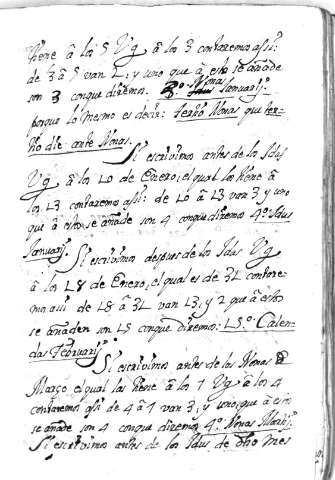 tiene â los 5 Vg â los 3 contaremos assi:
de 3 â 5 van 2, y uno que â esto se añade
son 3 conque diremos. 3º Nonas Januarij.
porque lo mesmo es decir: tertio Nonas, que ter-
tio die ante Nonas.
Si escrivimos antes de los Idus
Vg â los 10 de Enero, el qual los tiene â
los 13 contaremos assi: de 10 â 13 van 3 y uno
que â estos se añade son 4 conque diremos 4º Idus
Januarij. Si escrivimos despues de los Idus Vg
â los 18 de Enero, el qual es de 31 contare-
mo assi de 18 â 31 van 13, y 2 que â estos
se añaden son 15 conque diremos: 15º Calen-
das Februarij.
Si escrivimos antes de las Nonas
Março el qual las tiene â los 7 Vg â los 4
contaremos assi de 4 â 7 van 3, y uno, que â estos
se añade son 4 conque diremos 4º Nonas Martij.
Si escrivimos antes de los Idus de dho mes